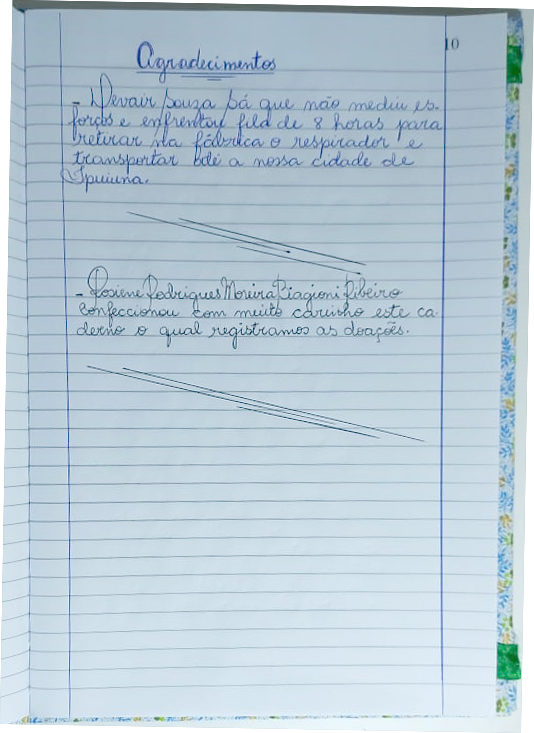 10
Agradecimentos
- Devair Souza Sá que não mediu es-
forços e enfrentou fila de 8 horas para
retirar na fábrica o respirador e
transportar até a nossa cidade de
Ipuiuna.
- Rosiene Rodrigues Moreira Biagioni Ribeiro
confeccionou com muito carinho este ca-
derno o qual registramos as doações.